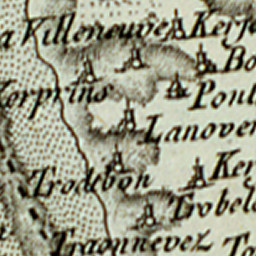 a Villeneuve Kerja
Bo
Korprins Pont
Lanoven
Trodebon Ker
Trobel
Traonnevez To